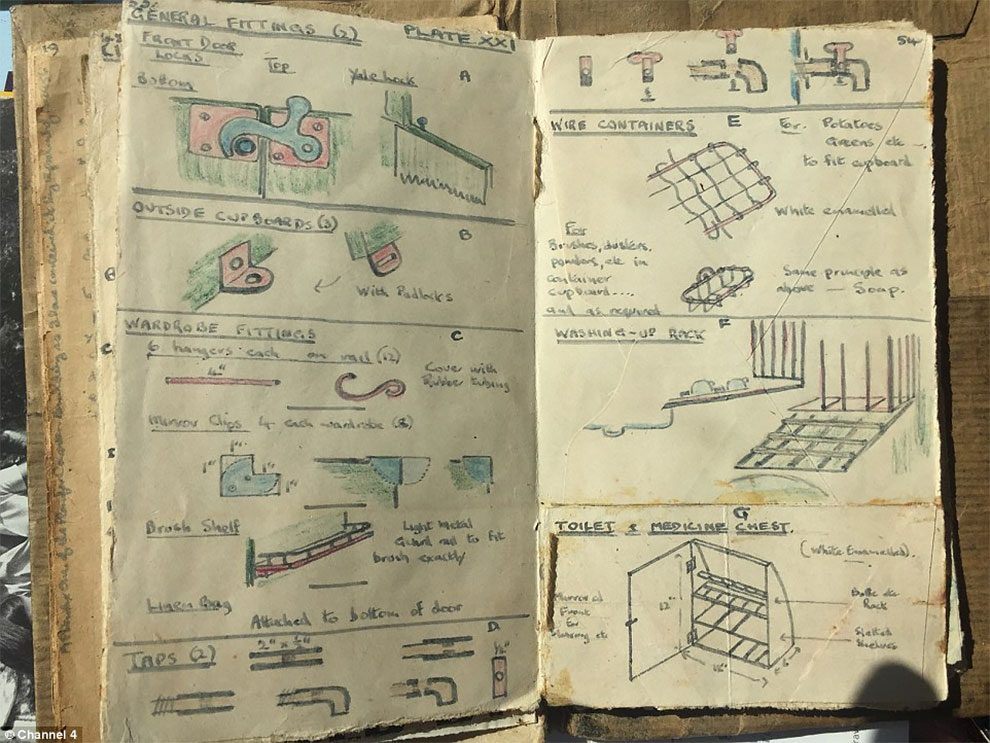 GENERAL FITTINGS (2)
PLATE XXI
FRONT DOOR
LOCKS
Bottom
Top
Yale Lock
A
OUTSIDE CUPBOARDS (3)
B
With Padlocks
WARDROBE FITTINGS
C
6 hangers each on rail (12)
4"
Cover with
Rubber Tubing
Mirror Clips 4 each wardrobe (8)
1"
1"
1"
Brush Shelf
Light Metal
Guard rail to fit
brush exactly
Linen Bag
Attached to bottom of door
D
TAPS (2)
54
WIRE CONTAINERS
E
For Potatoes
Greens etc
to fit cupboard
White enamelled
For
Brushes, dusters,
powders, etc in
container
cupboard....
and as required
Same principle as
above — Soap.
F
WASHING-UP RACK
G
TOILET & MEDICINE CHEST
(White Enamelled).
Mirror at
Front
for
Shaving etc
12"
Bottle etc
Rack
Slatted
Shelves
© Channel 4